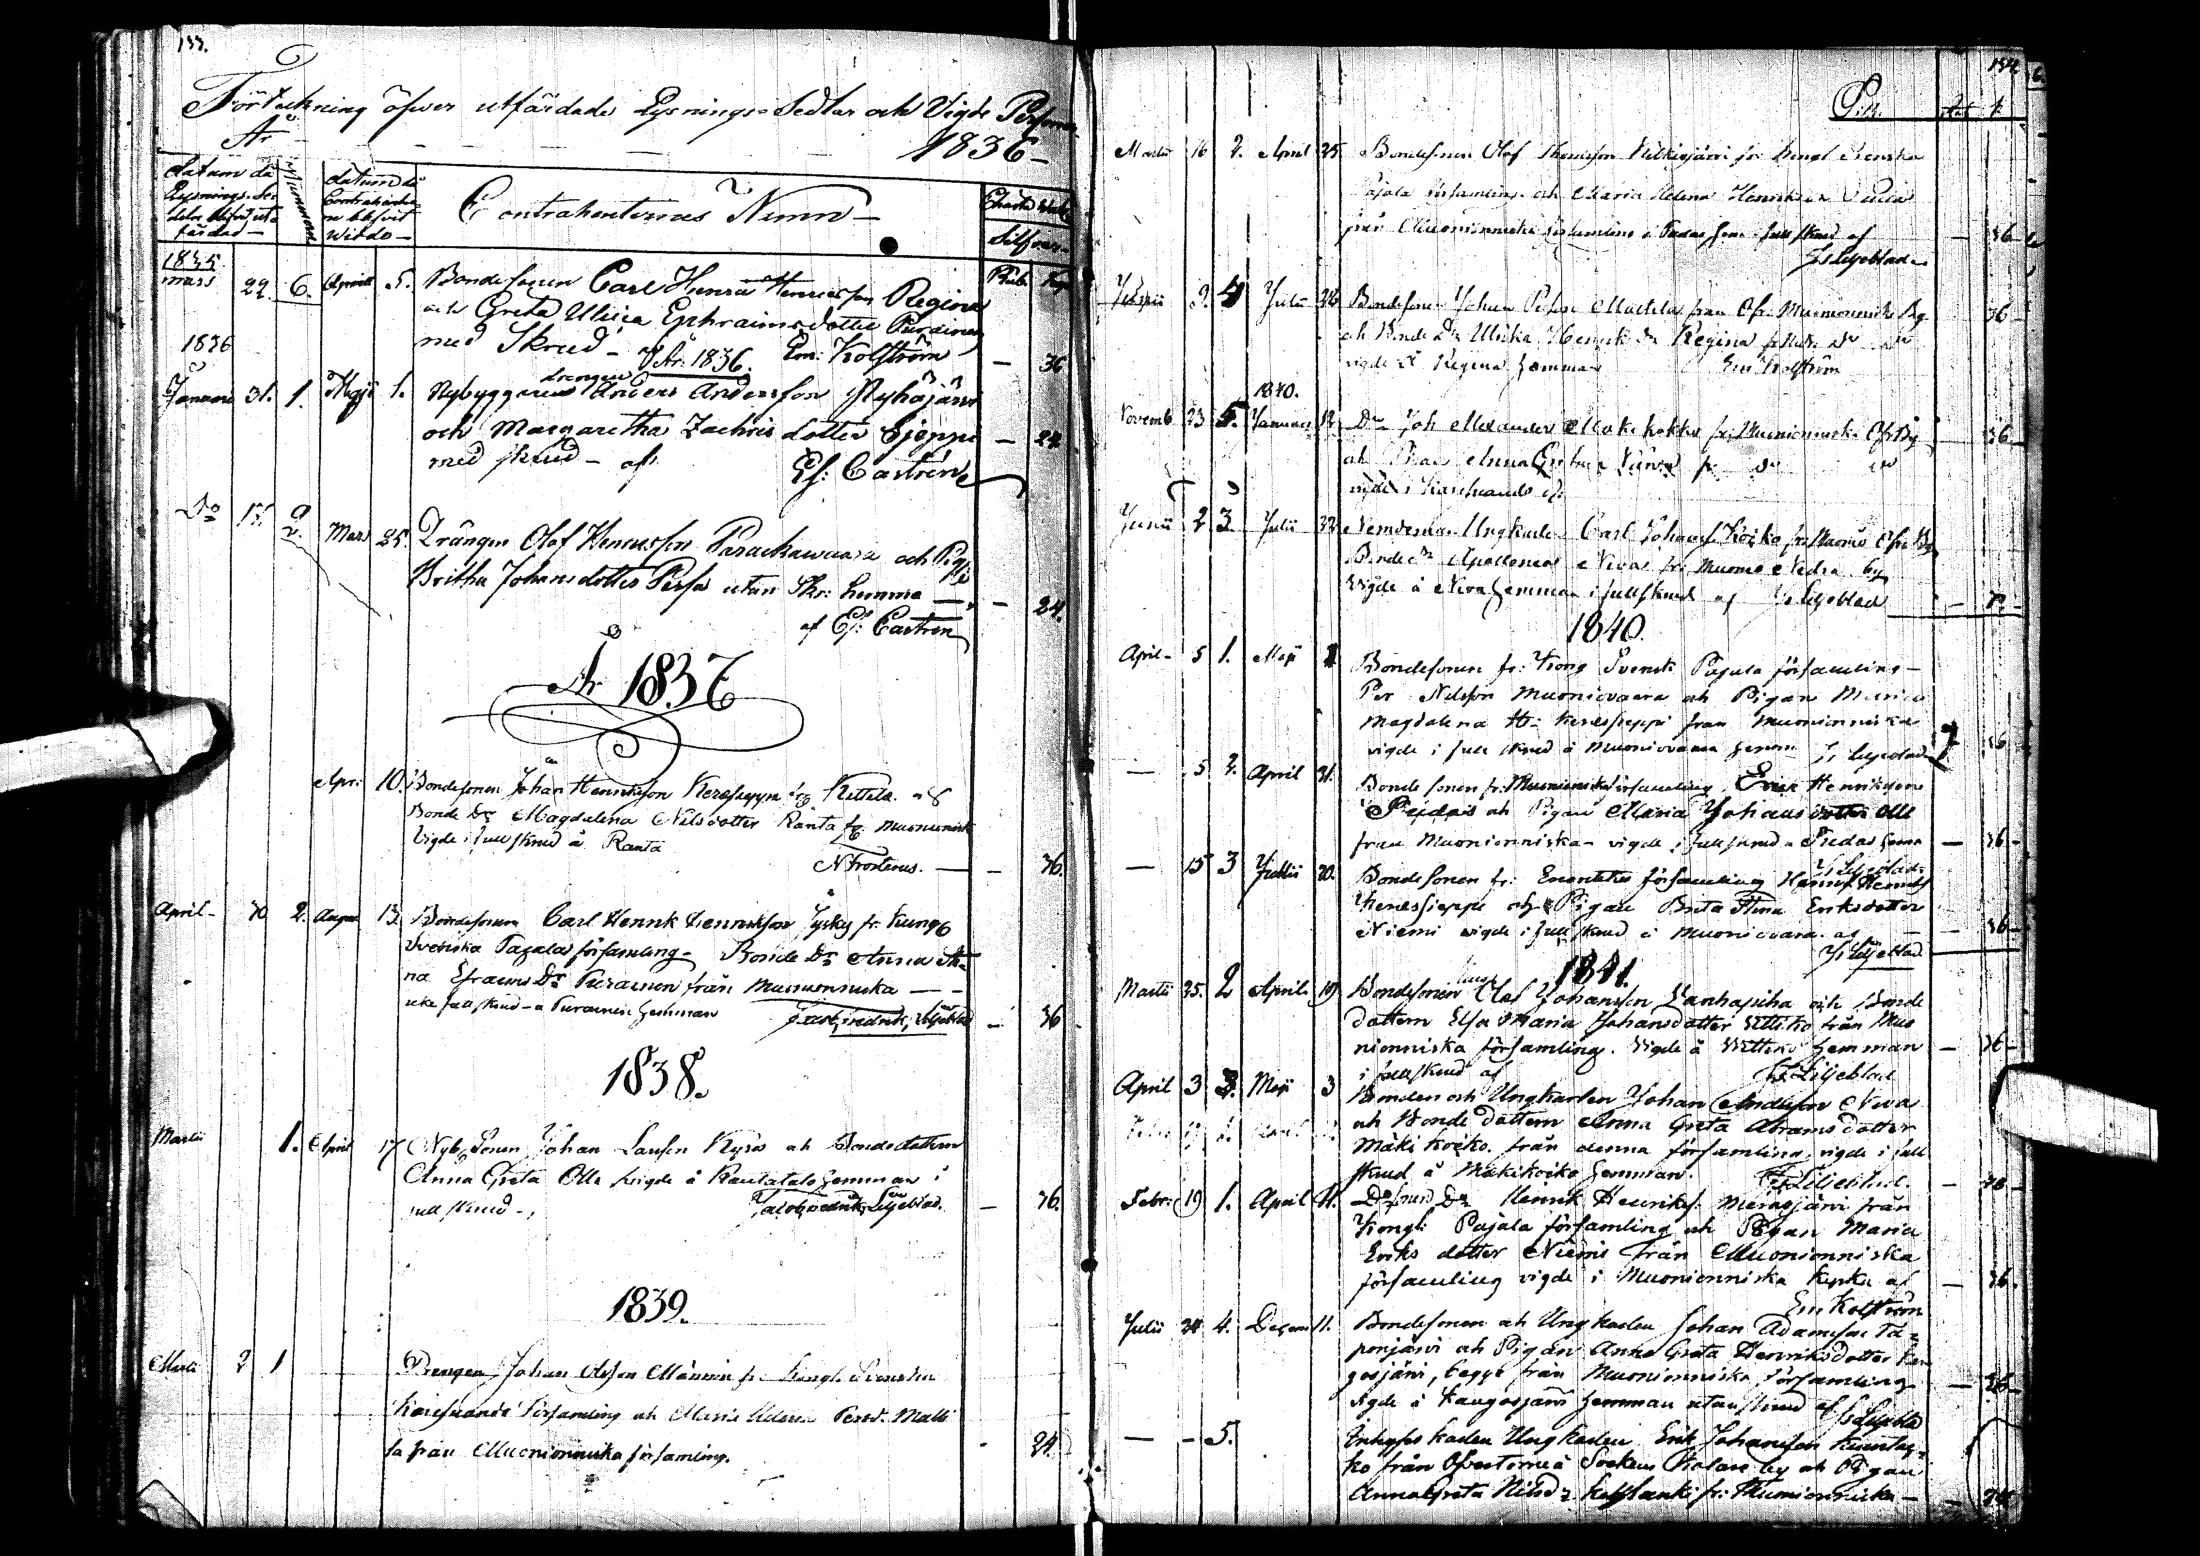 133.
Förteckning öfwer utfärdade Lysnings-Sedlar och Vigde Personer
År - - - - 1836-
datum då Lysnings-Se-
delen blifvit ut-
färdad-
datum då
Contrahenter-
ne blifvit
wikde-
Contrahenternas Namn-
Charta
Silfver-
Rub. Kop
1835
mars 22. 6. Aprill 5. Bondesonen Carl Henric Henricsson Regina
och Greta Ulrica Ephraimsdotter Purainen
med Skrud- Em: Kolström - 36
V. År. 1836.
1836
Januari 31. 1. Maji 1. Nybyggaren drengen Anders Andersson Pyhäjärvi
och Margaretha Zachris dotter Sjeppi - 24.
med skrud- af Ef: Castrén
Do 15. 2. Mars 25. Drängen Olof Henricsson Parackawaara och Pigan
Britha Johansdotter Persa utan Skr: hemma - - 24.
af Ef: Castrén
År 1837
Apri: 10. Bondesonen Johan Henriksson Keressieppi fr. Kittilä och
Bonde Dr Magdalena Nilsdotter Ranta fr. Muonionisk
Vigde i full skrud å Ranta
N Frosterus. - - 36.
April- 30 2. August 13. Bondesonen Carl Henrik Henriksson Tysky fr. Kungl
Svenska Pajala församling- Bonde Dr Anna St-
na Efraims Dr Purainen från Muonionniska - -
uti full skrud-å Purainen hemman Jacob Fredrik Liljeblad - 36
1838.
Martii 1. April 17 Nyb. Sonen Johan Larsson Kyrö och Bondedottern
Anna Greta Olla vigde å Rautatalo hemman i
full skrud-, Jacob Fredrik Liljeblad. - 36.
1839.
Martii 2 1 Drengen Johan Olsson Männin fr. Kongl. Svenska
Karesuando Församling och Maria Helena Persd. Matti
la från Muonionniska församling. - 24.
134.
S:R.
R. k.
Martii 16 2. April 25. Bondesonen Olof Thomsson Kilkisjärvi fr. Kongl Svenska
Pajala församling och Maria Helena Henriksdr
från Muonionniska församling i full skrud af - 36
Js Liljeblad
9. 4 Julii Bondesonen Johan Petsson Mattila från Ofr. Muonioniska By - 36-
och Bonde Dr Ulrika Henriks Dr Regina
vigde å Regina hemman Em Kolström
1840.
Novemb. 23 5. Januari 12 Dr Joh Alexander fr. Muonioniska Ofr. By - 36-
och Anna fr. Dr
vigde i Karesuando af
Junii 2 3 Julii 22 Nemdeman Ungkarlen Carl Johans Koiko fr. Muonio Ofre By
Bonde Dr Apollonia Niva fr. Muonio Nedra by
Vigde å Niva hemman i full skrud af Js Liljeblad -
1840.
April- 5 1. Maji Bondesonen fr: Kong Svensk Pajala församling-
Per Nilsson Muoniovaara och Pigan Maria
Magdalena Hr: Keressieppi från Muonionniska
vigde i full skrud å Muoniovaara genom Js Liljeblad - 36
- 5 2. April 21. Bondesonen fr. Muonioniska församling Erik Henriksson
Pudas och Pigan Maria Johansdotter Olli
från Muonionniska- vigde i full skrud å Pudas hema - 36-
Js Liljeblad.
- 15 3 Julii 20. Bondesonen fr: Enontekis församling
Keressieppi och Pigan Brita Stina Eriksdotter
Niemi vigde i full skrud å Muoniovaara. af - 36-
Js Liljeblad
1841.
Martii 25. 2 April. 19 Bondesonen Olof Johansson Lanhapiha och Bonde
dottern Elsa Maria Johansdotter Uttiko från Muo
nionniska församling. Vigde å Uttiko hemman - 36-
i full skrud af Fr. Liljeblad
April 3 3. Maji 3 Bonden och Ungkarlen Johan Andersson Niva
och Bonde dottern Anna Greta Abrams dotter
Mäki Koiko. från denna församling, vigde i full
skrud å Mäkikoiko hemman. Fr. Liljeblad. - 36-
Febr: 19 1. April 11. Drsons Dr Henrik Henriks. Merasjärvi från
Kongl: Pajala församling och Pigan Maria
Eriks dotter Niemi från Muonionniska
församling vigde i Muonionniska kyrka af - 36.
Em Kolström
Julii 24 4. Decem 11. Bondesonen och Ungkarlen Johan Adamsson Ta-
porjärvi och Pigan Anna Greta Henriksdotter Kan
gosjärvi, begge från Muonionniska församling - 36-
vigde å Kangosjärvi hemman utan skrud af Js Liljeblad
- - 5. Inhyses karlen Ungkarlen Erik Johansson
ko från Öfvertorneå Sockens Kolare by och Pigan
Anna Greta Nilsdr fr: Muonionniska - - 24